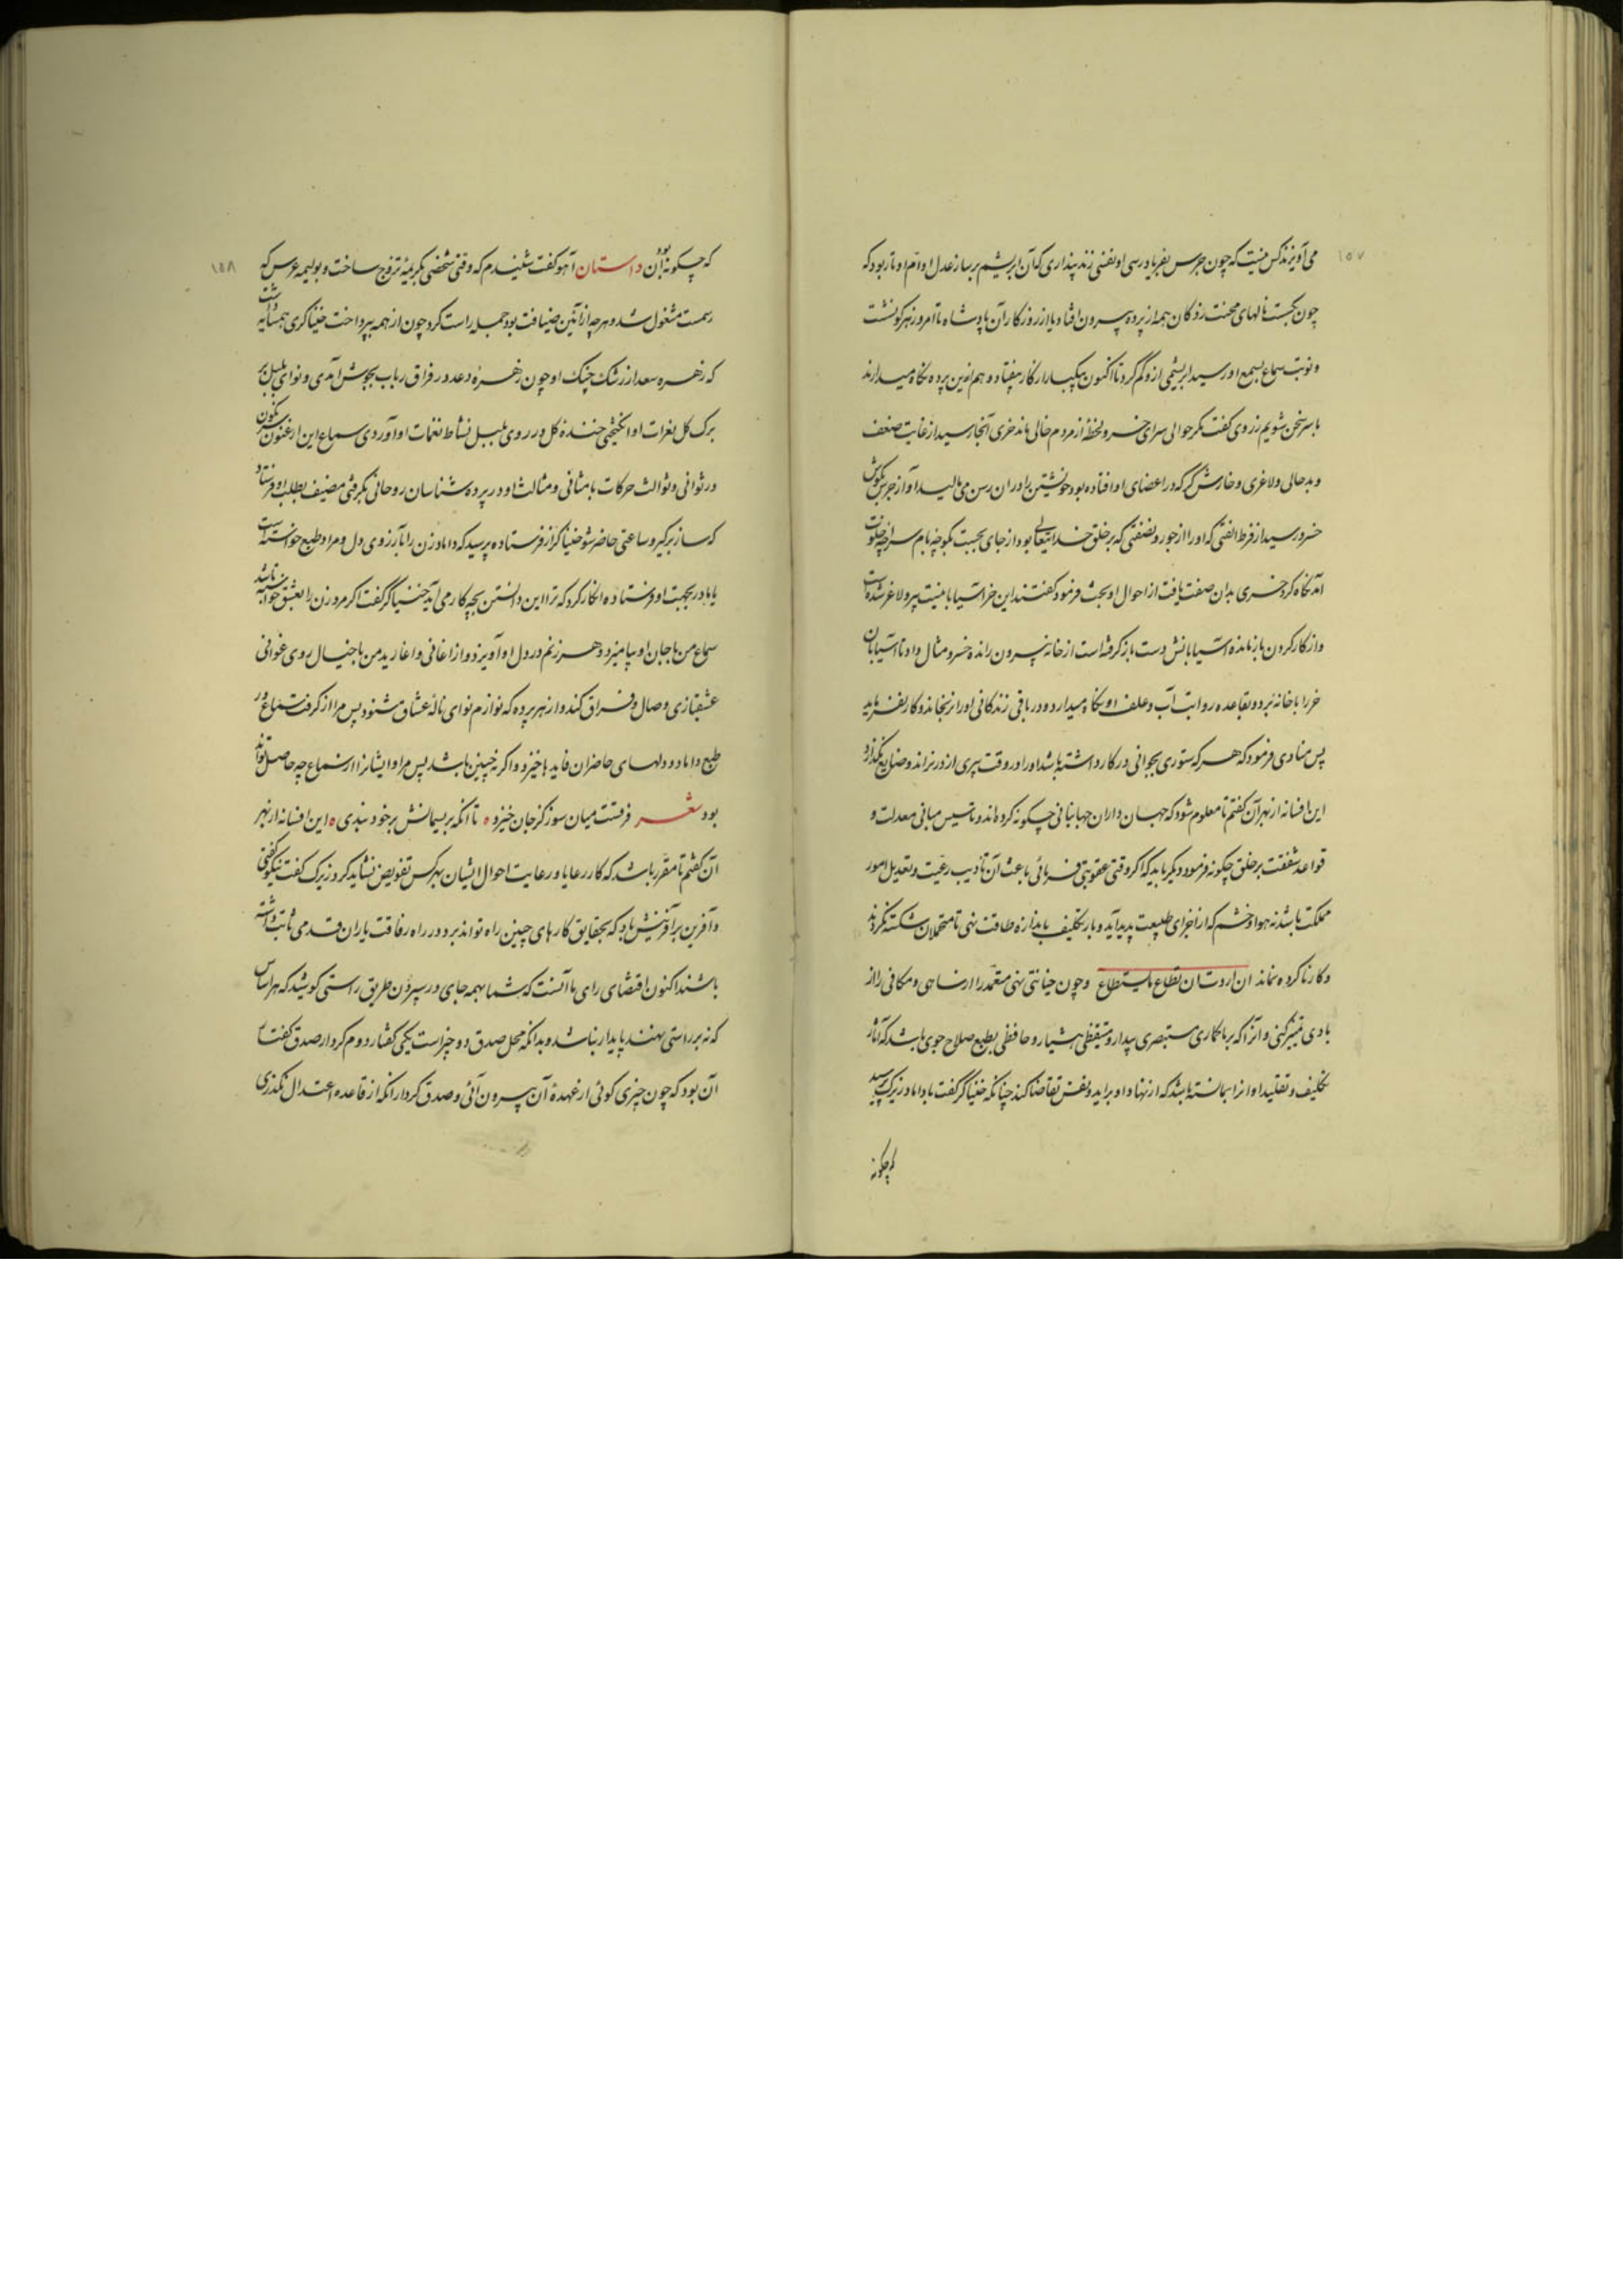 ۱۵۷
می‌آویزند کس نیست که چون جرس بفریادرسی او نفسی زند پنداری که آن ابریشم بر ساز عدل او دام اوتار بود که
چون بگسست نالهای محنت زدگان همه از پرده بیرون افتاد یا از روزگار آن پادشاه تا امروز هرگونشست
و نوبت سماع بسمع او رسید ابریشمی از و گم کرد تا اکنون بیکبار از کار بیفتاد و هم برین پرده نگاه میدارند
با سر سخن شویم روزی گفت مگر حوالی سرای خسرو لحظهٔ از مردم خالی ماند خری آنجا رسید از غایت ضعف
و بدحالی و لاغری و خارش گر که در اعضای او افتاده بود خویشتن را در آن رسن می‌مالید آواز جرس بگوش
خسرو رسید از فرط انفتی که او را از جور و نصفتی که بر خلق خدا تعالی بود از جای بجست بگوشهٔ بام سراچه خلوت
آمد نگاه کرد خری بدان صفت یافت از احوال او بحث فرمود گفتند این خر آسیابانیست پیر و لاغر شده است
و از کار کردن باز مانده آسیابانش دست باز گرفته است از خانه بیرون رانده خسرو مثال داد تا آسیابان
خر را با خانه برد و بقاعده رواتب آب و علف او نگاه میدارد و در باقی زندگانی او را نرنجاند و کار نفرماید
پس منادی فرمود که هر که ستوری بجوانی در کار داشته باشد او را وقت پیری از در نراند و ضایع نگذارد
این افسانه از بهر آن گفتم تا معلوم شود که جهان داران جهانبانی چگونه کرده‌اند و تاسیس مبانی معدلت و
قواعد شفقت بر خلق چگونه فرمود و دیگر باید که اگر وقتی عقوبتی فرمائی باعث آن تادیب رعیت و تعدیل امور
مملکت باشد نه هوا و خشم که از اجزای طبیعت پدید آید و بار تکلیف باندازه طاقت نهی تا متحملان شکسته نگردند
و کار ناکرده نماند ان اردت ان تطاع ما یستطاع و چون خیانتی نهی متعمد را از ساهی و مکافی را از
بادی تمییز کنی و آنرا که بر ناکاری مستبصری بیدار و متیقظی هشیار و حافظی بطبع صلاح جوی باشد که آثار
تکلیف و تقلید او از ابسانسته باشد که از نهاد او برآید و نفس تقاضا کند چنانکه خنیاگر گفت با داماد زیرک پرسید
که چگونه
۱۵۸
که چگونه بود آن داستان آهو گفت شنیدم که وقتی شخصی بکریمهٔ تزوج ساخت و بولیمه عرس که
رسمست مشغول شد و هر چه از آئین ضیافت بود جمله راست کرد چون از همه بپرداخت خنیاگری همسایه داشت
که زهره سعد از رشک چنگ او چون زهرهٔ دعد در فراق رباب بجوش آمدی و نوای بلبل بر
برگ گل بغرات او انگیختی خنده گل در روی بلبل نشاط نغمات او آوردی سماع این ارغنون سرنگون
در ثوانی و ثوالث حرکات با مثانی و مثالث او در پرده شناسان روحانی نگرفتی مضیف بطلب او فرستاد
که ساز برگیر و ساعتی حاضر شو خنیاگر از فرستاده پرسید که داماد زن را بآرزوی دل و مراد طبع خواسته است
یا مادر بجبت او فرستاده انکار کرد که ترا این دانستن بچه کار می‌آید خنیاگر گفت اگر مرد زن را بعشق خواسته باشد
سماع من با جان او بیامیزد و هر زخم در دل او آویزد و از اغانی و اغارید من با خیال روی غوانی
عشقبازی وصال و فراق کند و از هر پرده که نوازم نوای نالهٔ عشاق شنود پس مرا از گرفت سماع در
طبع داماد و دلهای حاضران فایدها خیزد و اگر نه چنین باشد پس مرا و ایشانرا از سماع چه حاصل تواند
بود شعر فرقست میان سوز کز جان خیزد ه تا آنکه بریسمانش بر خود بندی ه این افسانه از بهر
آن گفتم تا مقرر باشد که کار رعایا و رعایت احوال ایشان بهر کس تفویض نشاید کرد زیرک گفت نیکو گفتی
و آفرین بر آفرینش باد که بحقایق کارهای چنین راه تواند برد و در راه رفاقت یاران قدمی ثابت داشته
باشند اکنون اقتضای رای ما آنست که شما بهمه جای در سپردن طریق راستی کوشید که هر اساس
که نه بر راستی نهند پایدار نباشد و بدانکه محل صدق دو چیز است یکی گفتار دوم کردار صدق گفتار
آن بود که چون چیزی گوئی از عهدهٔ آن بیرون آئی و صدق کردار آنکه از قاعده اعتدال نگذری